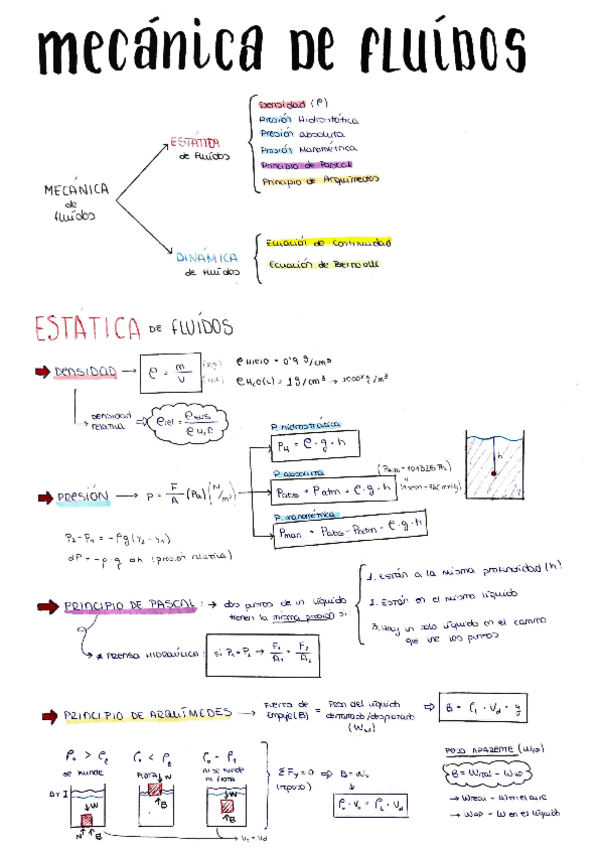 MECÁNICA DE FLUÍDOS
MECÁNICA
de
fluídos
ESTÁTICA
de fluídos
Densidad (ρ)
Presión Hidrostática
Presión absoluta
Presión Manométrica
Principio de Pascal
Principio de Arquímedes
DINÁMICA
de fluídos
Ecuación de Continuidad
Ecuación de Bernoulli
ESTÁTICA DE FLUÍDOS
DENSIDAD → ρ = m/V (kg) (m³)
ρ HIELO = 0'9 g/cm³
ρ H₂O(L) = 1 g/cm³ → 1000 kg/m³
densidad relativa ⇒ ρrel = ρsus/ρH₂O
PRESIÓN → P = F/A (Pa) (N/m²)
P. hidrostática
P_H = ρ · g · h
P. absoluta
Pabs = Patm + ρ · g · h
P. manométrica
Pman = Pabs - Patm = ρ · g · h
h
P₂ - P₁ = - ρg (y₂ - y₁)
dP = - ρ · g · dh (presión relativa)
PRINCIPIO DE PASCAL: → dos puntos de un líquido
tienen la misma presión si:
1. Están a la misma profundidad (h)
2. Están en el mismo líquido
3. Hay un solo líquido en el camino
que une los puntos
* PRENSA HIDRAÚLICA: si P₁ = P₂ → F₁/A₁ = F₂/A₂
PRINCIPIO DE ARQUÍMEDES → Fuerza de Empuje (B) = Peso del líquido
⇒ B = ρL · Vd · g
se hunde
FLOTA
ni se hunde
ni flota
W
N
B
W
B
W
B
ΣFy = 0 ⇒ B = W
(reposo)
PESO APARENTE (Wap)
B = Wreal - Wap
→ Wreal = W en el aire
→ Wap = W en el líquido